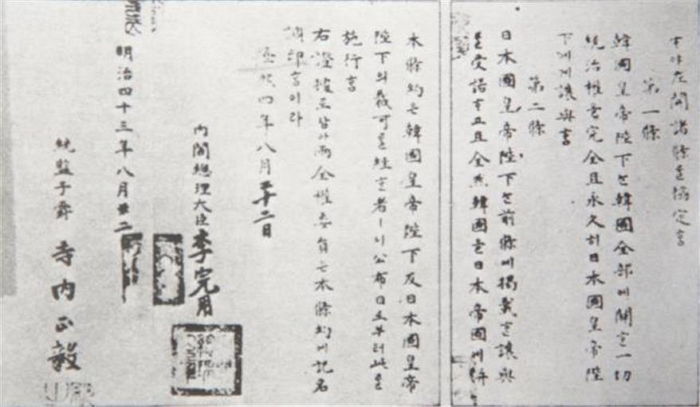 ᄒᆞ야左開諸條을協定홈
第一條
韓國皇帝陛下는韓國全部에關ᄒᆞᆫ一切
統治權을完全且永久히日本國皇帝陛
下에게讓與홈
第二條
日本國皇帝陛下는前條에揭載ᄒᆞᆫ讓與
를受諾ᄒᆞ고且全然韓國을日本帝國에倂
本條約은韓國皇帝陛下及日本國皇帝
陛下의裁可를經ᄒᆞᆫ者ㅣ니公布日로부터此를
施行홈
右證據로삼아兩全權委員은本條約에記名
調印홈이라
隆熙四年八月二十二日
內閣總理大臣 李完用
明治四十三年八月廿二
統監子爵 寺內正毅